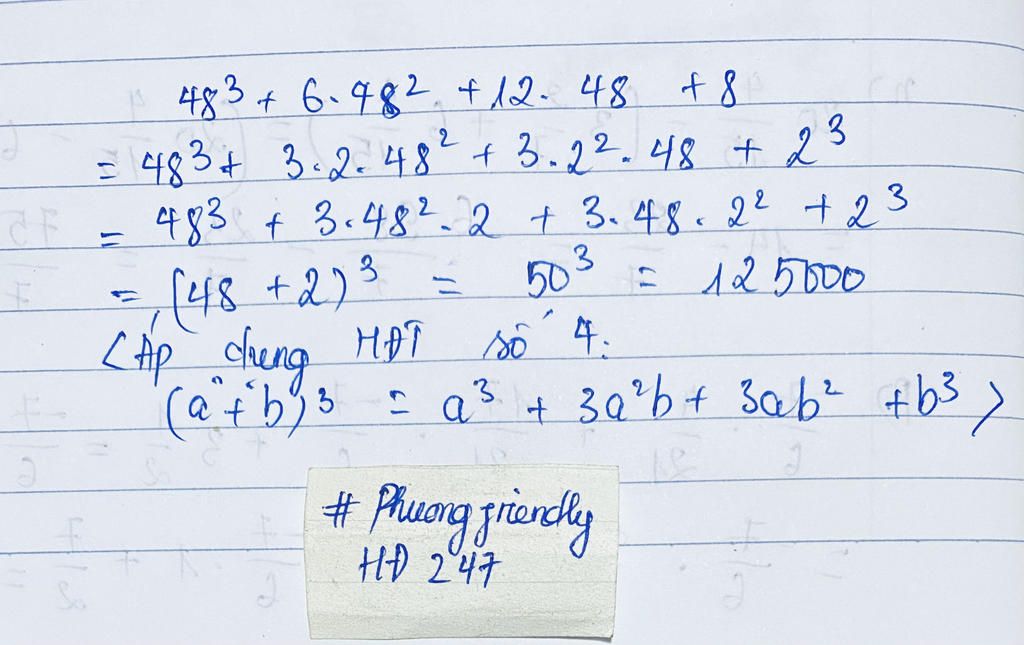 48³ + 6.48² + 12.48 + 8
= 48³ + 3.2.48² + 3.2².48 + 2³
= 48³ + 3.48².2 + 3.48.2² + 2³
= (48 + 2)³ = 50³ = 125000
<Áp dụng HĐT số 4:
(a + b)³ = a³ + 3a²b + 3ab² + b³ >
# Phuong friendly
HĐ 247